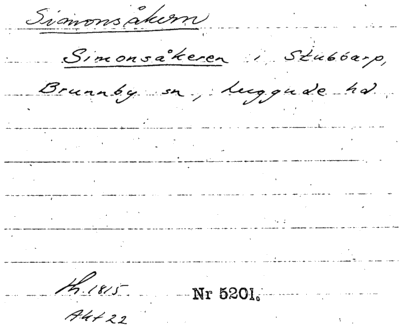 Simonsåkern
Simonsåkeren i Stubbarp,
Brunnby sn, Luggude hd.
1815
Nr 5201.
Akt 22